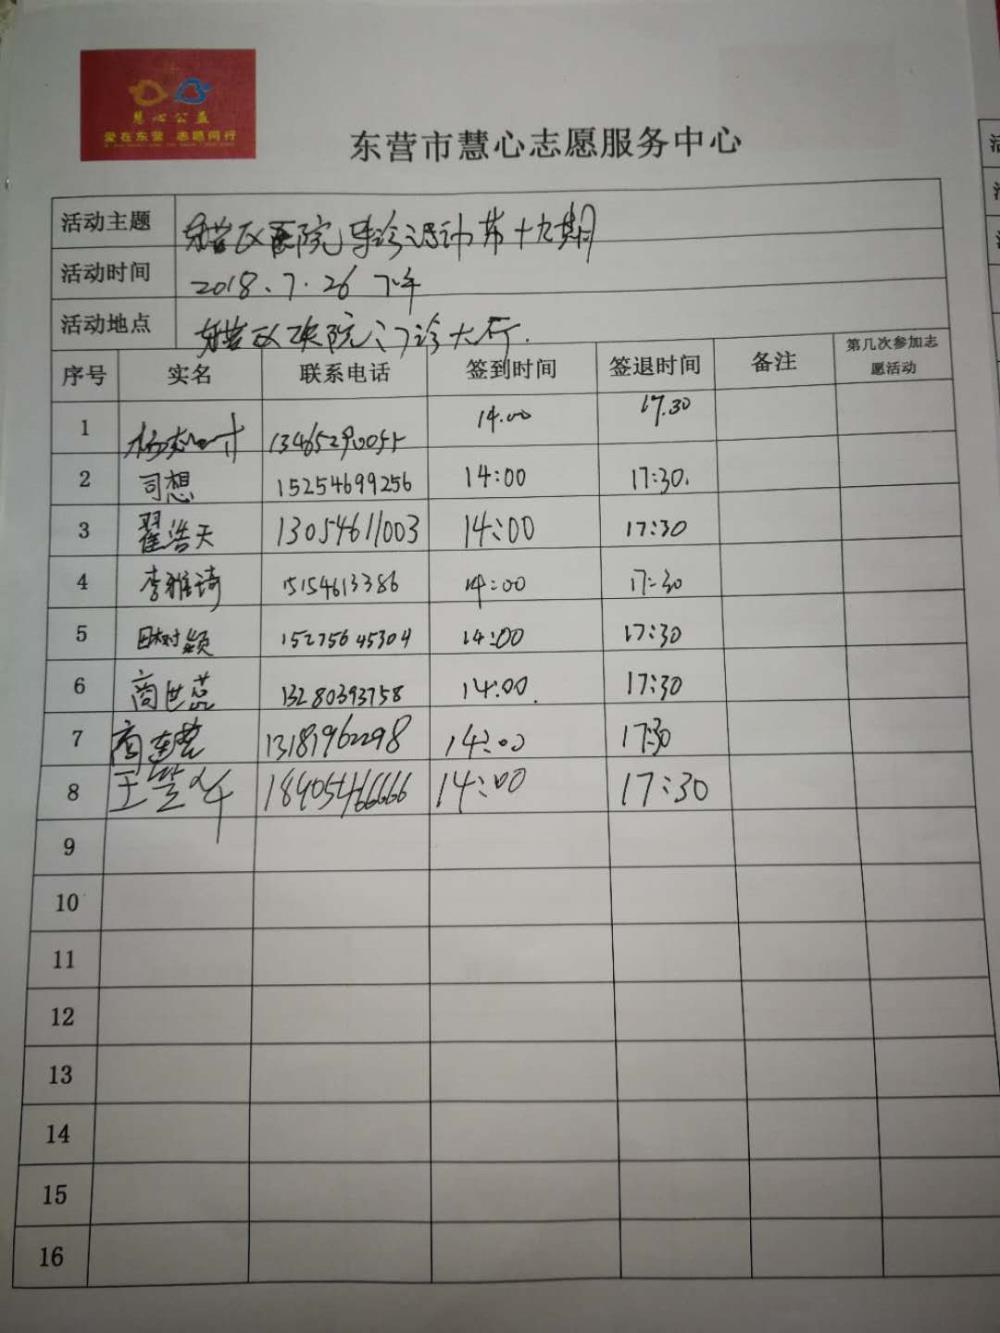 慧心公益
爱在东营 志愿同行
东营市慧心志愿服务中心
活动主题 东营区医院导诊活动第十九期
活动时间 2018.7.26 下午
活动地点 东营区医院门诊大厅.
序号 实名 联系电话 签到时间 签退时间 备注 第几次参加志愿活动
1 14.00 17.30
2 司想 15254699256 14:00 17:30.
3 翟浩天 13054611003 14:00 17:30
4 李雅琦 15154613386 14:00 17:30
5 田树颖 15275645304 14:00 17:30
6 商世蕊 13280393758 14:00. 17:30
7 商 13181962298 14:00 17:30
8 王 18405466666 14:00 17:30
9
10
11
12
13
14
15
16